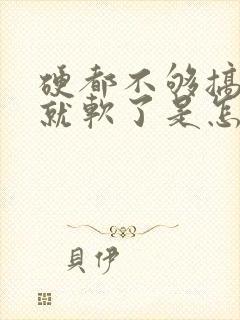 硬都不够搞
就軟了是怎
貝伊